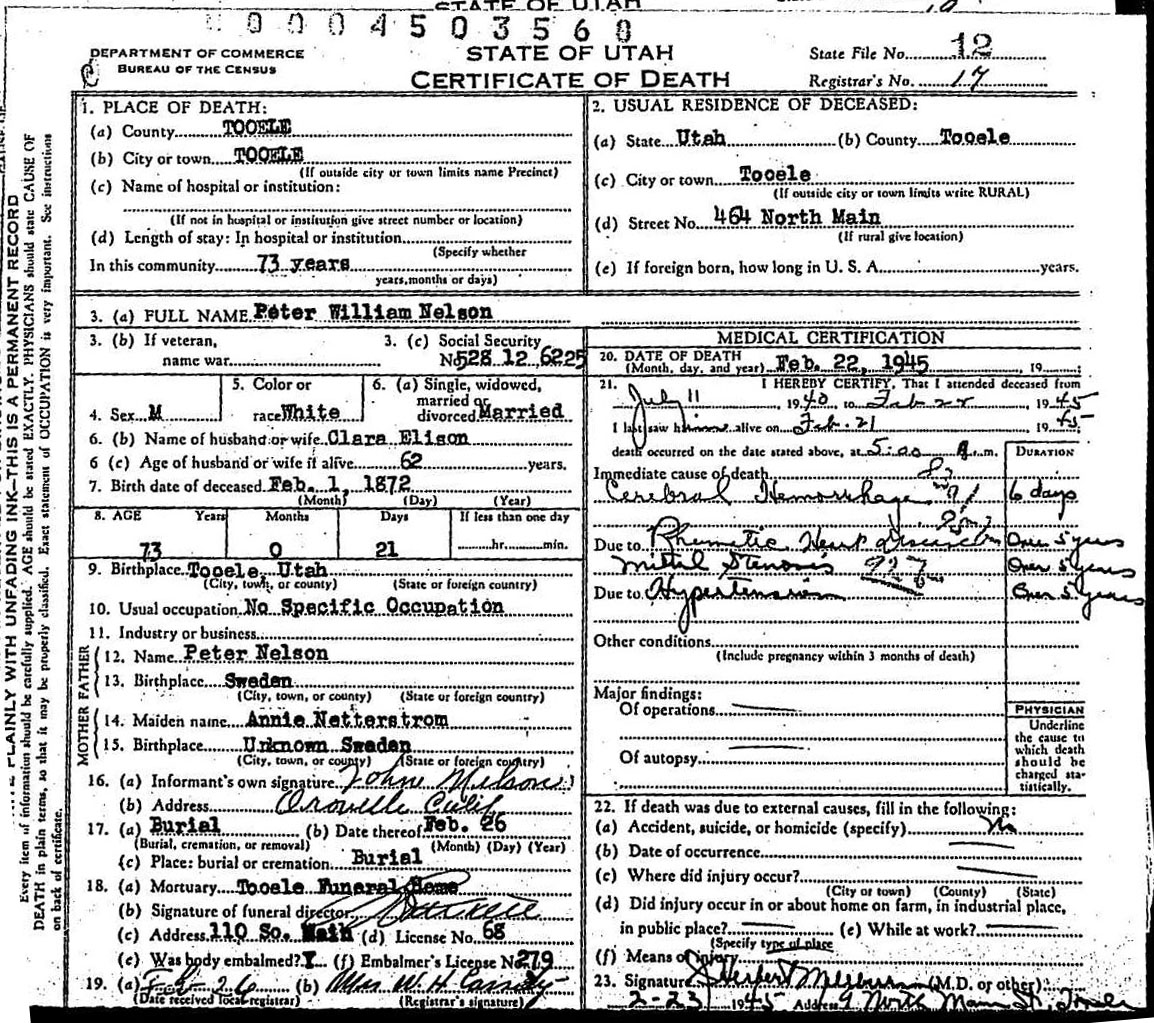 STATE OF UTAH
0 0 0 4 5 0 3 5 6 0
DEPARTMENT OF COMMERCE
BUREAU OF THE CENSUS
STATE OF UTAH
CERTIFICATE OF DEATH
State File No. 12
Registrar's No. 17
1. PLACE OF DEATH:
(a) County TOOELE
(b) City or town TOOELE
(If outside city or town limits name Precinct)
(c) Name of hospital or institution:
(If not in hospital or institution give street number or location)
(d) Length of stay: In hospital or institution
(Specify whether
In this community 73 years
years, months or days)
2. USUAL RESIDENCE OF DECEASED:
(a) State Utah (b) County Tooele
(c) City or town Tooele
(If outside city or town limits write RURAL)
(d) Street No. 464 North Main
(If rural give location)
(e) If foreign born, how long in U. S. A. years.
3. (a) FULL NAME Peter William Nelson
3. (b) If veteran,
name war
3. (c) Social Security
No 528 12 6225
4. Sex M
5. Color or
race White
6. (a) Single, widowed,
married or
divorced Married
6. (b) Name of husband or wife Clara Elison
6 (c) Age of husband or wife if alive 62 years.
7. Birth date of deceased Feb. 1, 1872
(Month) (Day) (Year)
8. AGE Years Months Days If less than one day
73 0 21 hr. min.
9. Birthplace Tooele Utah
(City, town, or county) (State or foreign country)
10. Usual occupation No Specific Occupation
11. Industry or business
FATHER
12. Name Peter Nelson
13. Birthplace Sweden
(City, town, or county) (State or foreign country)
MOTHER
14. Maiden name Annie Netterstrom
15. Birthplace Unknown Sweden
(City, town, or county) (State or foreign country)
16. (a) Informant's own signature John Nelson
(b) Address Oroville Calif
17. (a) Burial (b) Date thereof Feb. 26
(Burial, cremation, or removal) (Month) (Day) (Year)
(c) Place: burial or cremation Burial
18. (a) Mortuary Tooele Funeral Home
(b) Signature of funeral director
(c) Address 110 So. Main (d) License No. 68
(e) Was body embalmed? Y (f) Embalmer's License No 279
19. (a) Feb 26 (b) Mrs W. H. Cassity
(Date received local registrar) (Registrar's signature)
MEDICAL CERTIFICATION
20. DATE OF DEATH
(Month, day, and year) Feb. 22, 1945 19
21. I HEREBY CERTIFY, That I attended deceased from
July 11 1940 to Feb 22 1945
I last saw him alive on Feb. 21 1945
death occurred on the date stated above, at 5:00 A.m.
DURATION
Immediate cause of death
Cerebral Hemorrhage 6 days
Due to Rhumatic Heart Disease Over 5 years
Mitral Stenosis Over 5 years
Due to Hypertension Over 5 years
Other conditions
(Include pregnancy within 3 months of death)
Major findings:
Of operations
Of autopsy
PHYSICIAN
Underline
the cause to
which death
should be
charged sta-
tistically.
22. If death was due to external causes, fill in the following:
(a) Accident, suicide, or homicide (specify) No
(b) Date of occurrence
(c) Where did injury occur?
(City or town) (County) (State)
(d) Did injury occur in or about home on farm, in industrial place,
in public place? (e) While at work?
(Specify type of place
(f) Means of injury
23. Signature J Herbert Millburn (M.D. or other)
2-23 1945 Address 9 North Main St. Tooele
PLAINLY WITH UNFADING INK—THIS IS A PERMANENT RECORD
Every item of information should be carefully supplied. AGE should be stated EXACTLY. PHYSICIANS should state CAUSE OF
DEATH in plain terms, so that it may be properly classified. Exact statement of OCCUPATION is very important. See instructions
on back of certificate.